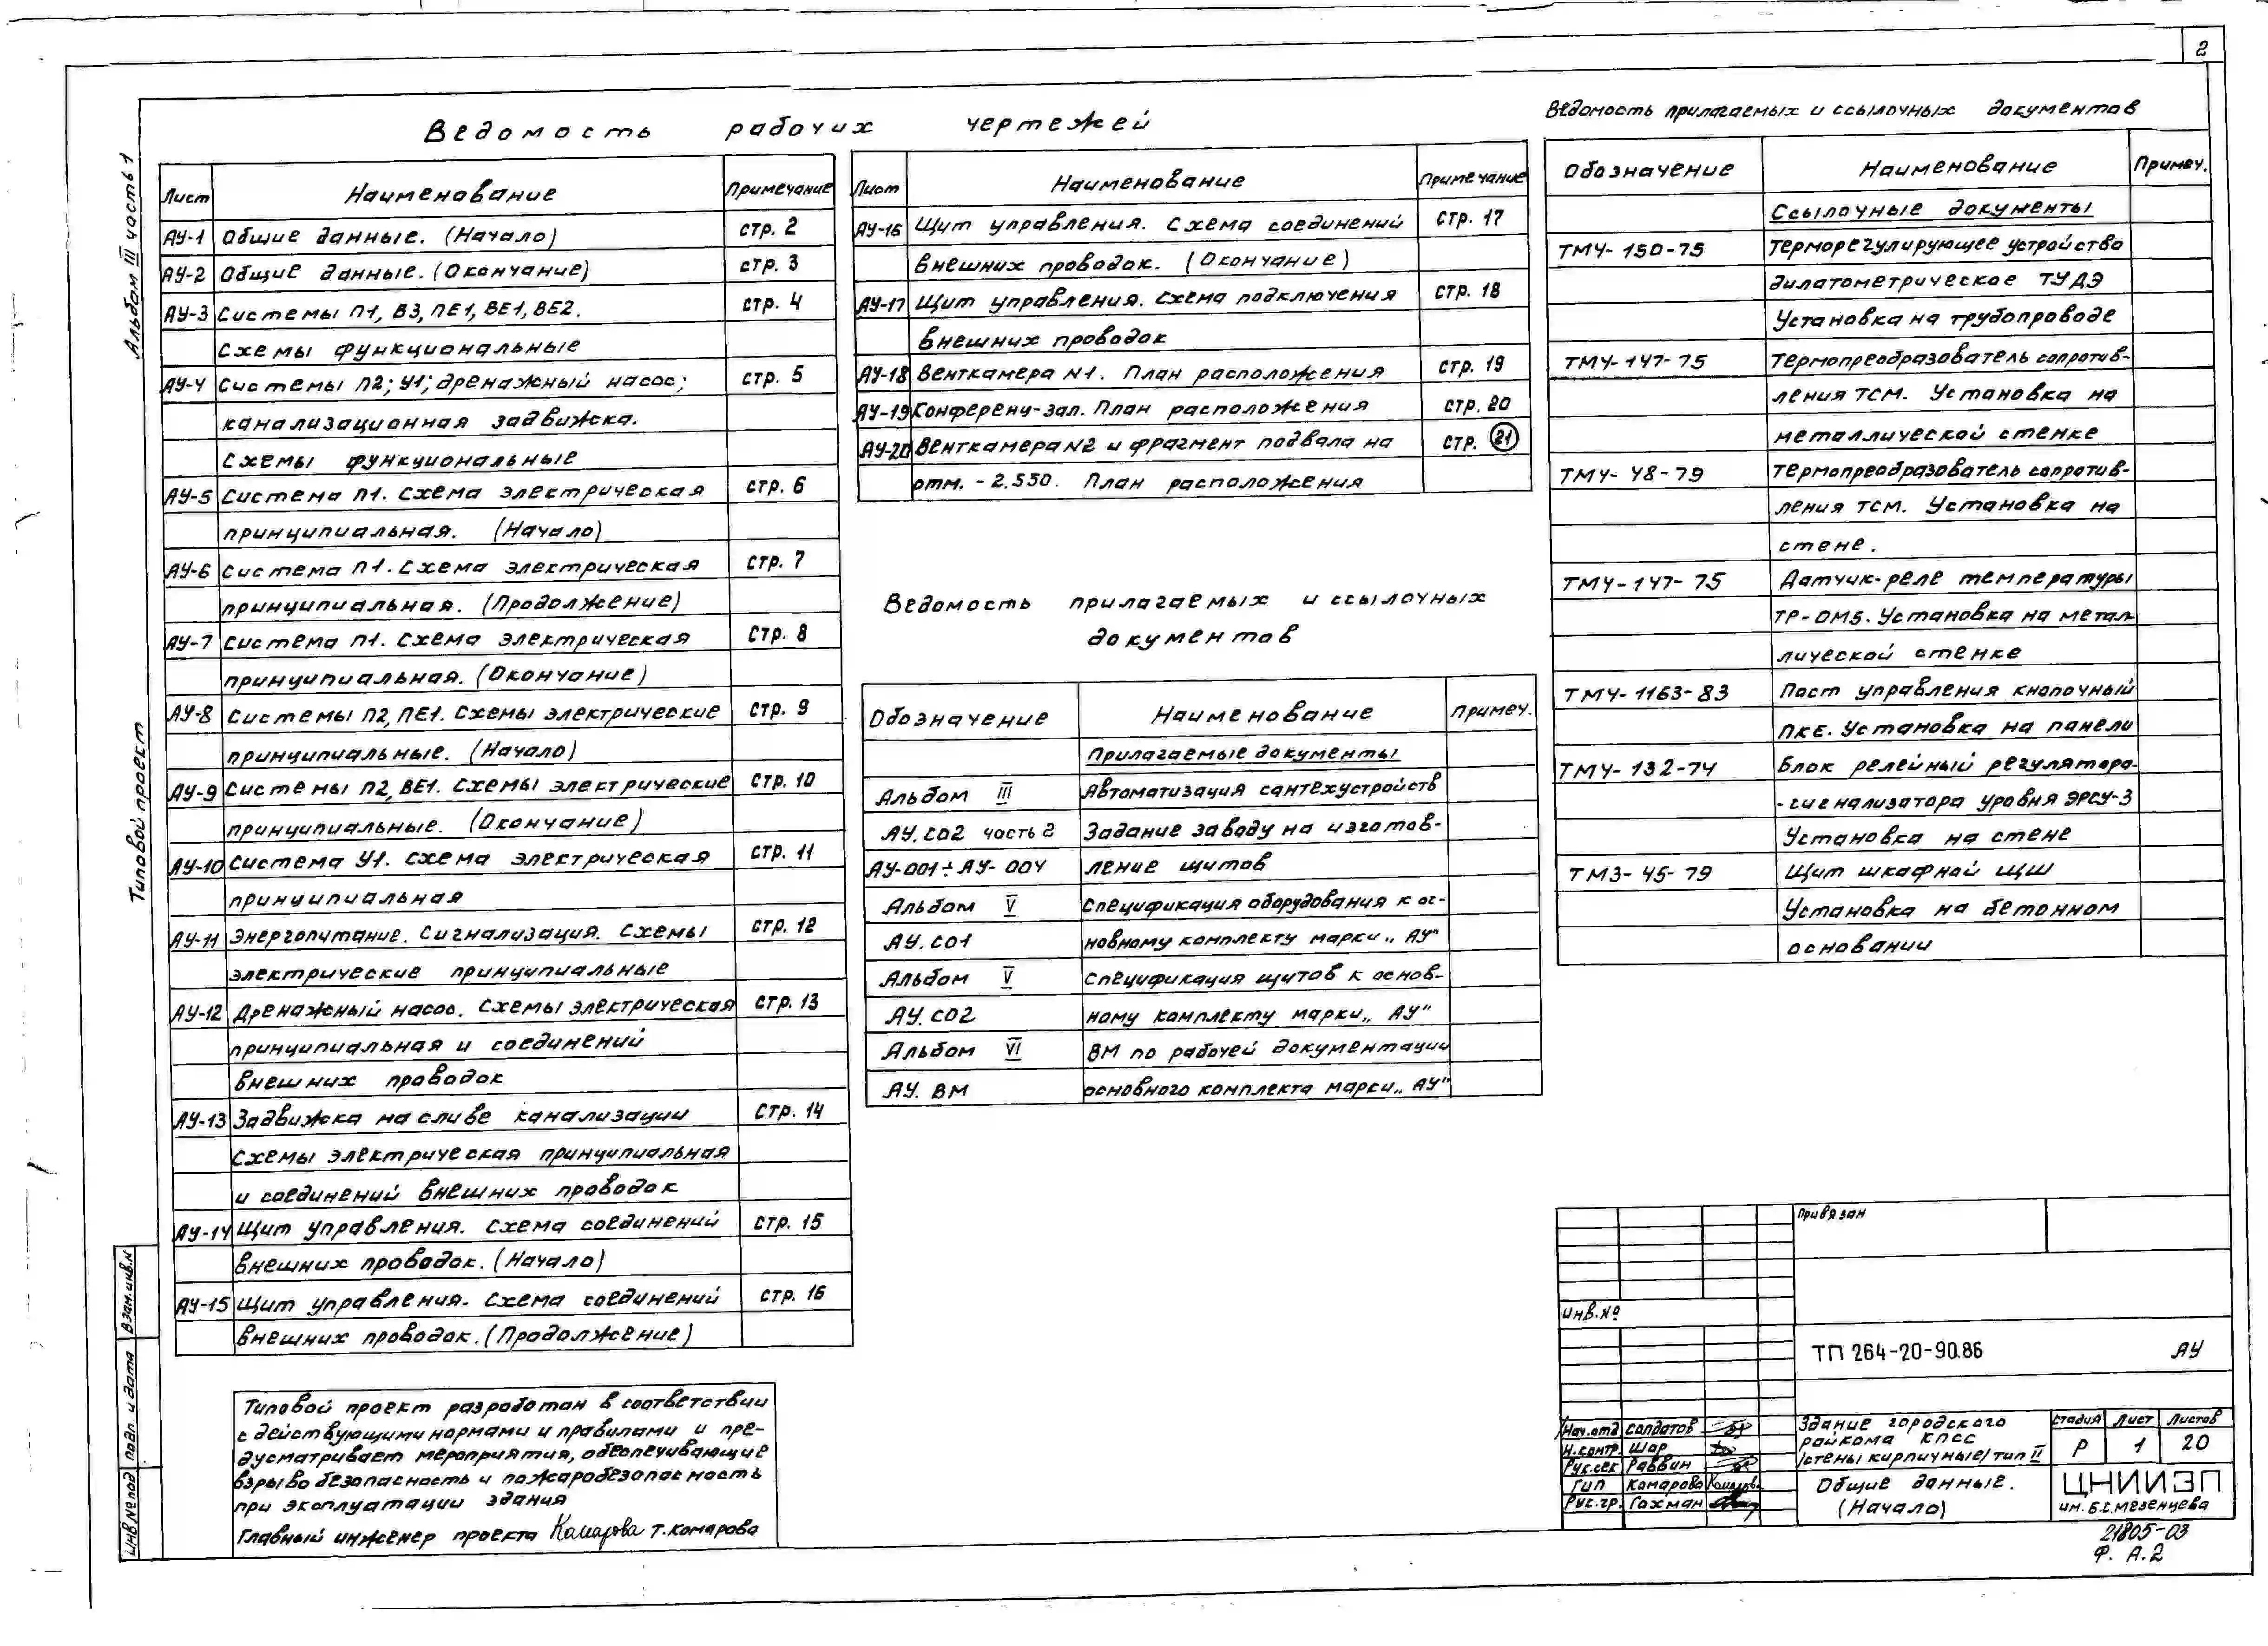 2
Альбом III часть 1
Типовой проект
Ведомость рабочих чертежей
Лист Наименование Примечание
АУ-1 Общие данные. (Начало) стр. 2
АУ-2 Общие данные. (Окончание) стр. 3
АУ-3 Системы П1, В3, ПЕ1, ВЕ1, ВЕ2. стр. 4
Схемы функциональные
АУ-4 Системы П2; У1; дренажный насос; стр. 5
канализационная задвижка.
Схемы функциональные
АУ-5 Система П1. Схема электрическая стр. 6
принципиальная. (Начало)
АУ-6 Система П1. Схема электрическая стр. 7
принципиальная. (Продолжение)
АУ-7 Система П1. Схема электрическая стр. 8
принципиальная. (Окончание)
АУ-8 Системы П2, ПЕ1. Схемы электрические стр. 9
принципиальные. (Начало)
АУ-9 Системы П2, ВЕ1. Схемы электрические стр. 10
принципиальные. (Окончание)
АУ-10 Система У1. Схема электрическая стр. 11
принципиальная
АУ-11 Энергопитание. Сигнализация. Схемы стр. 12
электрические принципиальные
АУ-12 Дренажный насос. Схемы электрическая стр. 13
принципиальная и соединений
внешних проводок
АУ-13 Задвижка на сливе канализации стр. 14
Схемы электрическая принципиальная
и соединений внешних проводок
АУ-14 Щит управления. Схема соединений стр. 15
внешних проводок. (Начало)
АУ-15 Щит управления. Схема соединений стр. 16
внешних проводок. (Продолжение)
Лист Наименование Примечание
АУ-16 Щит управления. Схема соединений стр. 17
внешних проводок. (Окончание)
АУ-17 Щит управления. Схема подключения стр. 18
внешних проводок
АУ-18 Венткамера N1. План расположения стр. 19
АУ-19 Конференц-зал. План расположения стр. 20
АУ-20 Венткамера N2 и фрагмент подвала на стр. 21
отм. -2.550. План расположения
Ведомость прилагаемых и ссылочных
документов
Обозначение Наименование Примеч.
Прилагаемые документы
Альбом III Автоматизация сантехустройств
АУ.СО2 часть 2 Задание заводу на изготов-
АУ-001÷АУ-004 ление щитов
Альбом V Спецификация оборудования к ос-
АУ.СО1 новному комплекту марки „АУ"
Альбом V Спецификация щитов к основ-
АУ.СО2 ному комплекту марки „АУ"
Альбом VI ВМ по рабочей документации
АУ.ВМ основного комплекта марки „АУ"
Ведомость прилагаемых и ссылочных документов
Обозначение Наименование Примеч.
Ссылочные документы
ТМ4-150-75 Терморегулирующее устройство
дилатометрическое ТУДЭ
Установка на трубопроводе
ТМ4-147-75 Термопреобразователь сопротив-
ления ТСМ. Установка на
металлической стенке
ТМ4-48-79 Термопреобразователь сопротив-
ления ТСМ. Установка на
стене.
ТМ4-147-75 Датчик-реле температуры
ТР-ОМ5. Установка на метал-
лической стенке
ТМ4-1163-83 Пост управления кнопочный
ПКЕ. Установка на панели
ТМ4-132-74 Блок релейный регулятора-
-сигнализатора уровня ЭРСУ-3
Установка на стене
ТМ3-45-79 Щит шкафной ЩШ
Установка на бетонном
основании
Типовой проект разработан в соответствии
с действующими нормами и правилами и пре-
дусматривает мероприятия, обеспечивающие
взрывобезопасность и пожаробезопасность
при эксплуатации здания
Главный инженер проекта Комарова Т. Комарова
Взам. инв. N
Подп. и дата
Инв № подл
Привязан
Инв. №
ТП 264-20-90.86 АУ
Нач. отд Солдатов
Н. контр. Шор
Рук. сек Раввин
ГИП Комарова Комарова
Рук. гр. Гохман
Здание городского
райкома КПСС
/стены кирпичные/ тип II
Стадия Лист Листов
Р 1 20
Общие данные.
(Начало)
ЦНИИЭП
им. Б.С. Мезенцева
21805-03
Ф. А.2